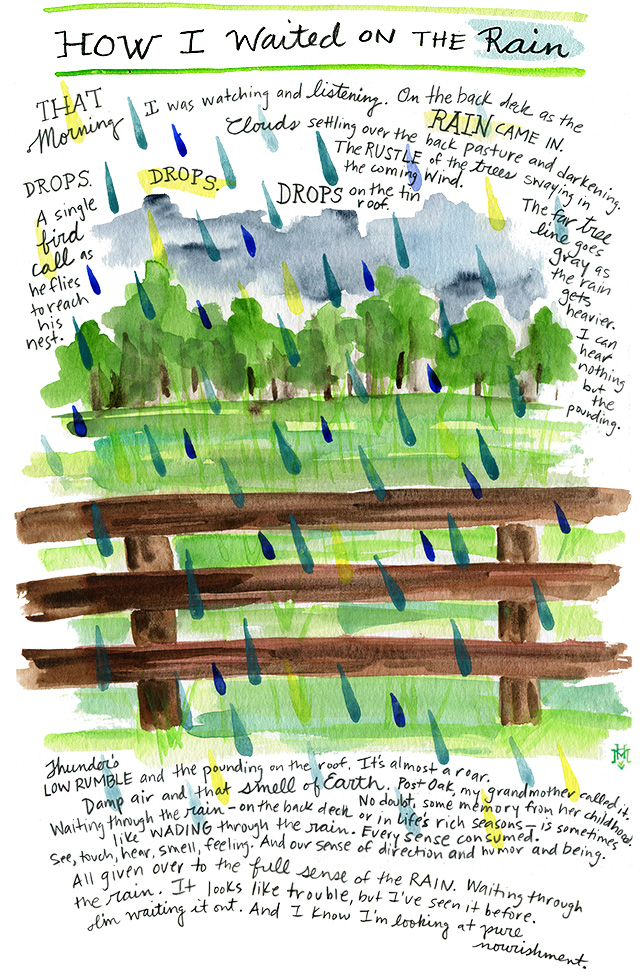 HOW I Waited ON THE Rain
THAT Morning I was watching and listening. On the back deck as the RAIN CAME IN.
Clouds settling over the back pasture and darkening.
The RUSTLE of the trees swaying in the coming wind.
DROPS.
DROPS.
DROPS on the tin roof.
A single
bird
call as
he flies
to reach
his
nest.
The far tree
line goes
gray as
the rain
gets
heavier.
I can
hear
nothing
but
the
pounding.
Thunder's
LOW RUMBLE and the pounding on the roof. It's almost a roar.
Damp air and that smell of Earth. Post Oak, my grandmother called it.
No doubt, some memory from her childhood.
Waiting through the rain - on the back deck or in life's rich seasons - is sometimes
like WADING through the rain. Every sense consumed.
See, touch, hear, smell, feeling. And our sense of direction and humor and being.
All given over to the full sense of the RAIN. Waiting through
the rain. It looks like trouble, but I've seen it before.
I'm waiting it out. And I know I'm looking at pure
nourishment.